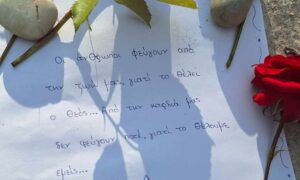 Οι άνθρωποι φεύγουν από
την ζωή μας, γιατί το θέλει
ο Θεός... Από την καρδιά μας
δεν φεύγουν ποτέ, γιατί το θέλουμε
εμείς...